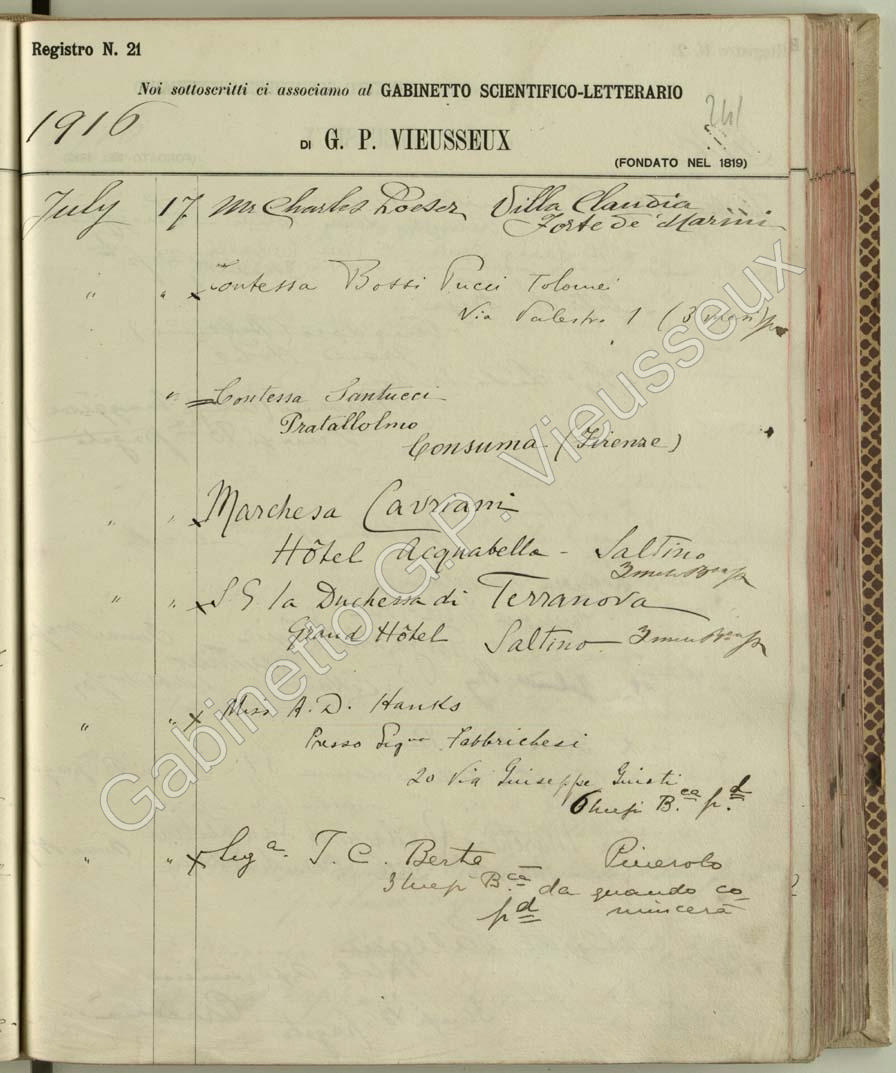 Registro N. 21
Noi sottoscritti ci associamo al GABINETTO SCIENTIFICO-LETTERARIO
1916
241
DI G. P. VIEUSSEUX
(FONDATO NEL 1819)
July 17. Mr Charles Loeser Villa Claudia
Forte de Marmi
" " x Contessa Bossi Pucci Tolomei
Via Palestro 1 (3 mesi)
" Contessa Santucci
Pratallolmo
Consuma (Firenze)
" " x Marchesa Cavriani
Hôtel Acquabella - Saltino
" " x S E la Duchessa di Terranova
Grand Hôtel Saltino
" " x Miss A. D. Hanks
Presso Sigra Fabbrichesi
20 Via Giuseppe Giusti
6 mesi B.ca p.d
" " x Sigª. T. C. Berte Pinerolo
3 mesi B.ca da quando co-
pd mincerà
Gabinetto G.P. Vieusseux